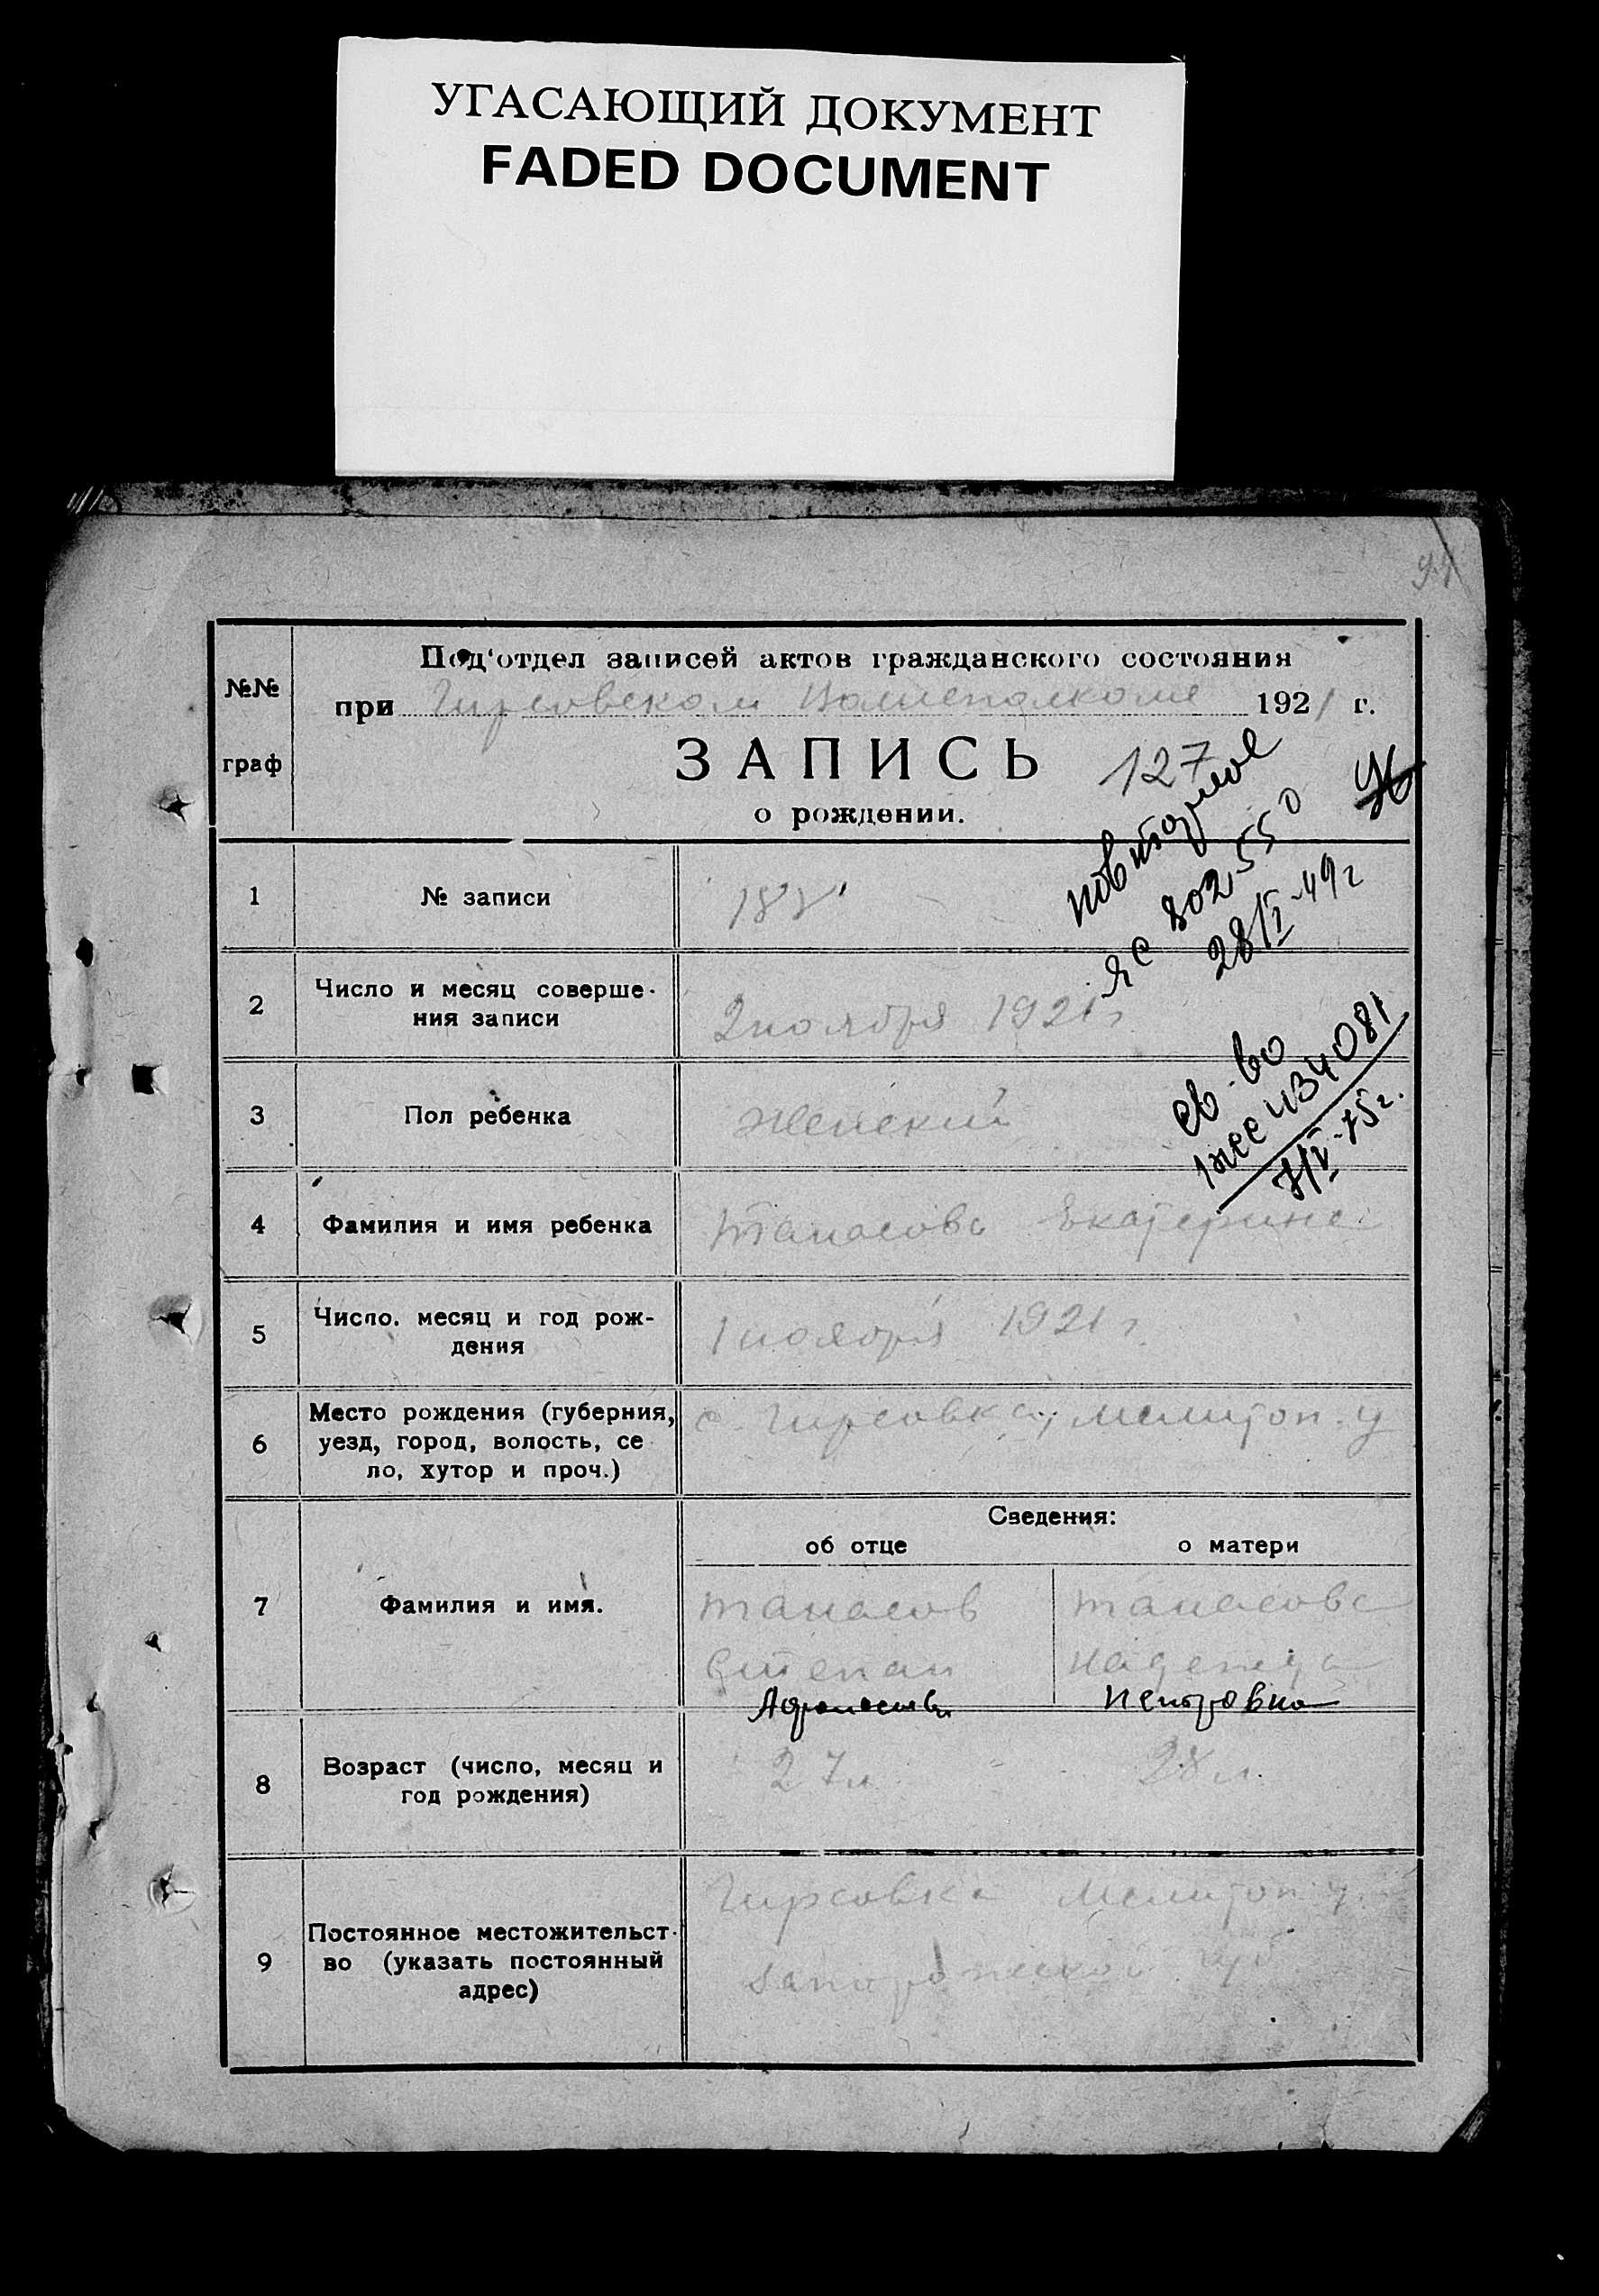 УГАСАЮЩИЙ ДОКУМЕНТ
FADED DOCUMENT
№№
граф
Под'отдел записей актов гражданского состояния
при Гирсовском Волисполкоме 1921 г.
ЗАПИСЬ
о рождении.
127
повторное
ЯС 802550
28/I-49г
1
№ записи
2
Число и месяц соверше-
ния записи
2 ноября 1921 г
св-во
434081
7/V-75г.
3
Пол ребенка
Женский
4
Фамилия и имя ребенка
Танасова Екатерина
5
Число. месяц и год рож-
дения
1 ноября 1921 г.
6
Место рождения (губерния,
уезд, город, волость, се
ло, хутор и проч.)
с. Гирсовка, Мелитоп. у
7
Фамилия и имя.
Сведения:
об отце
о матери
Танасов
Степан
Танасова
Надежда
Петровна
8
Возраст (число, месяц и
год рождения)
27 л.
28 л.
9
Постоянное местожительст-
во (указать постоянный
адрес)
Гирсовка Мелитоп. у.
Запорожской губ